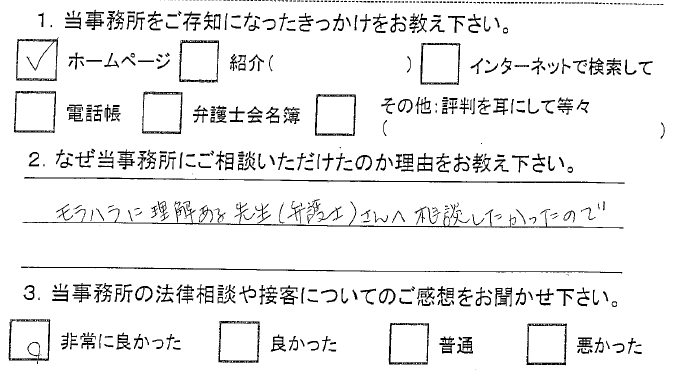 1. 当事務所をご存知になったきっかけをお教え下さい。
✓ ホームページ □ 紹介( ) □ インターネットで検索して
□ 電話帳 □ 弁護士会名簿 □ その他:評判を耳にして等々
( )
2. なぜ当事務所にご相談いただけたのか理由をお教え下さい。
モラハラに理解ある先生(弁護士)さんへ相談したかったので
3. 当事務所の法律相談や接客についてのご感想をお聞かせ下さい。
非常に良かった □ 良かった □ 普通 □ 悪かった